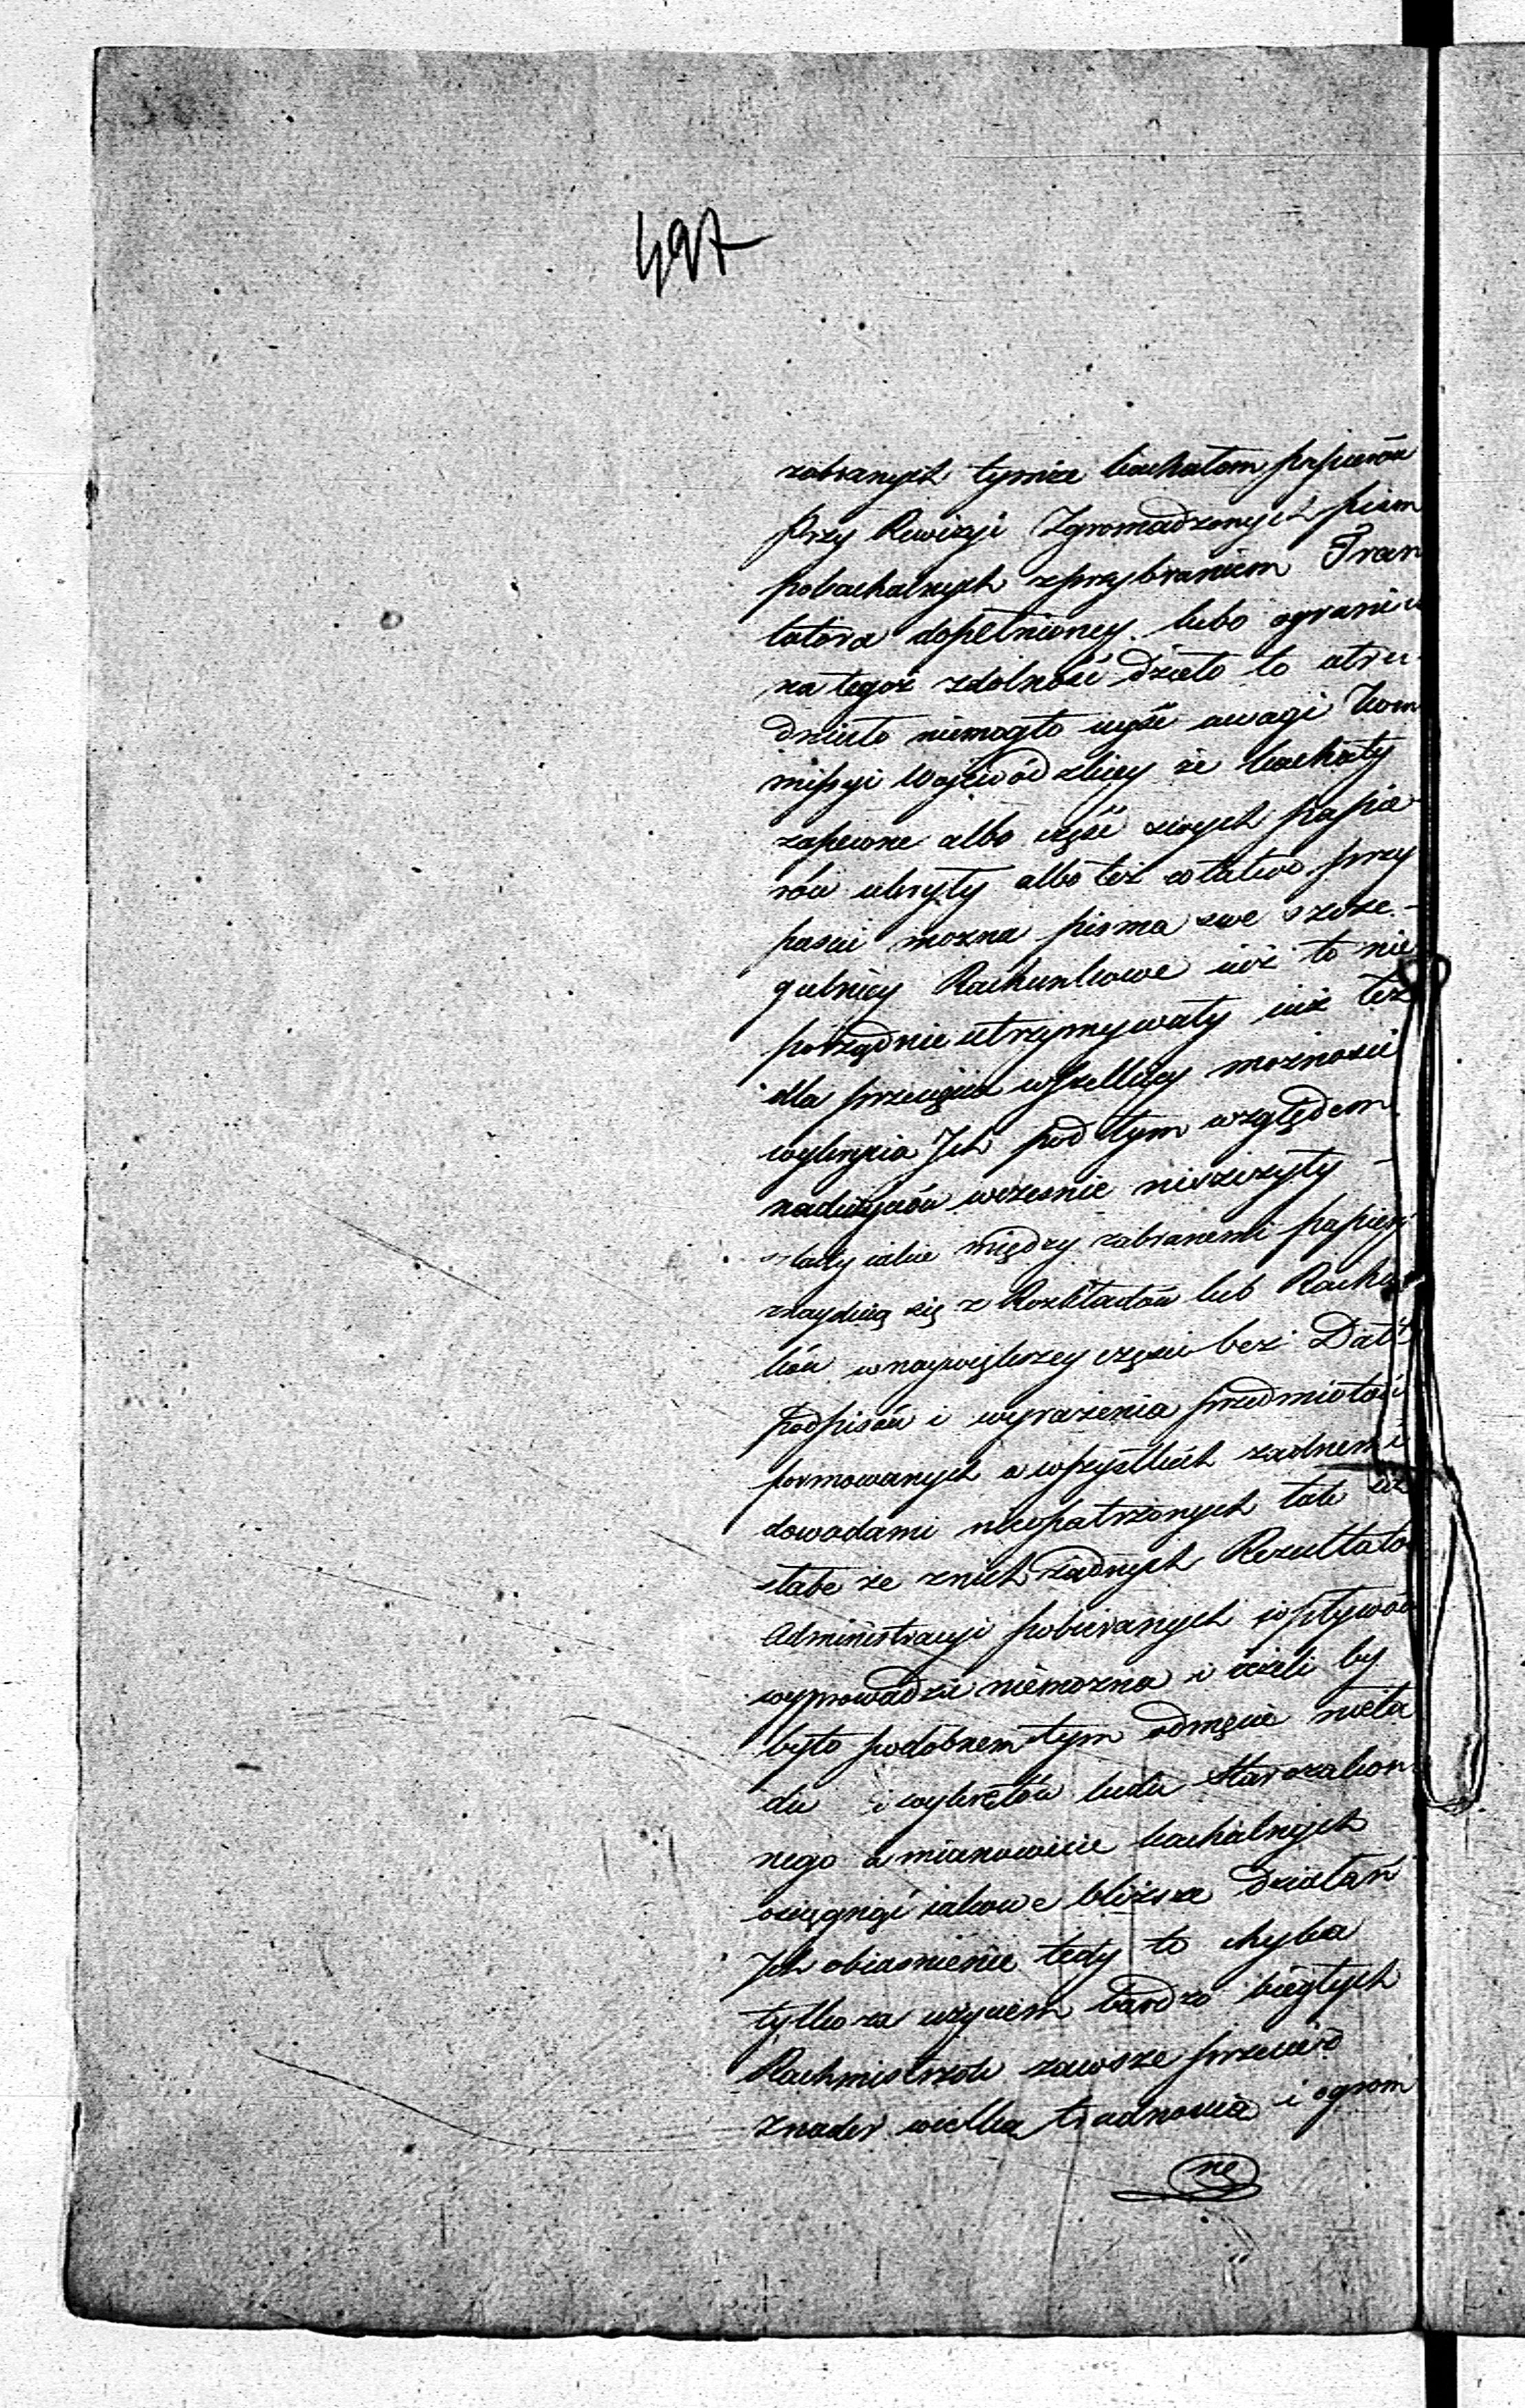 497
zabranych tymże kachałom papierów
przy Rewizyi Zgromadzonych pism
pokachalnych z przybraniem Tran
tatora dopełnioney. lubo ograni
na tegoż zdolność dzieło to utru
dniało niemogło uyść uwagi Kom
missyi Wojewódzkiey że kachały
zapewne albo część swych papie
rów ukryły albo też co łatwo przy
puścić można pisma swe szcze-
gulniey Rachunkowe iuż to nie
porządnie utrzymywały iuż też
dla przecięcia wszelkiey możności
wykrycia Ich pod tym względem
nadużyciów wcześnie niszczyły -
ślady iakie między zabranemi papier
znayduią się z Rozkładów lub Rachu
ków w naywiększey części bez Dat
podpisów i wyrażenia przedmiotów
formowanych a wszystkich żadnemi
dowodami nieopatrzonych tak są
słabe że z nich żadnych Rezultatów
Administracyi pobieranych wpływów
wyprowadzić niemożna i ieżeli by
było podobnem tym odmęcie nieła
du i wykrętów ludu Starozakon
nego a mianowicie kachalnych
osięgnąć iakowe bliższe działań
Ich obiaśnienie tedy to chyba
tylko za użyciem bardzo biegłych
Rachmistrzów zawsze przecież
z nader wielka trudnościa i ogrom
ne